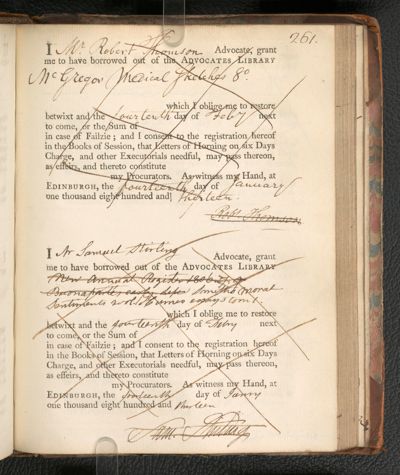 261.
I Mr. Robert Thomson Advocate, grant
me to have borrowed out of the ADVOCATES LIBRARY
McGregor Medical Sketches 8o.
which I oblige me to restore
betwixt and the fourteenth day of Feby next
to come, or the Sum of
in case of Failzie; and I consent to the registration hereof
in the Books of Session, that Letters of Horning on six Days
Charge, and other Executorials needful, may pass thereon,
as effeirs, and thereto constitute
my Procurators. As witness my Hand, at
EDINBURGH, the fourteenth day of January
one thousand eight hundred and thirteen.
Robt. Thomson
I Mr Samuel Stirling Advocate, grant
me to have borrowed out of the ADVOCATES LIBRARY
New Annual Register 1806
Smiths moral
Sentiments 2 vols essays tom 1.
which I oblige me to restore
betwixt and the day of Feby next
to come, or the Sum of
in case of Failzie; and I consent to the registration hereof
in the Books of Session, that Letters of Horning on six Days
Charge, and other Executorials needful, may pass thereon,
as effeirs, and thereto constitute
my Procurators. As witness my Hand, at
EDINBURGH, the day of Janry
one thousand eight hundred and thirteen
Sam. Stirling